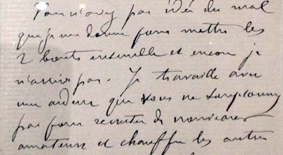 pas idée du mal
que je me donne pour mettre les
2 bouts ensemble et encore je
n'arrive pas. Je travaille avec
une ardeur que vous ne
pas pour recruter de nouveaux
amateurs et chauffer les autres